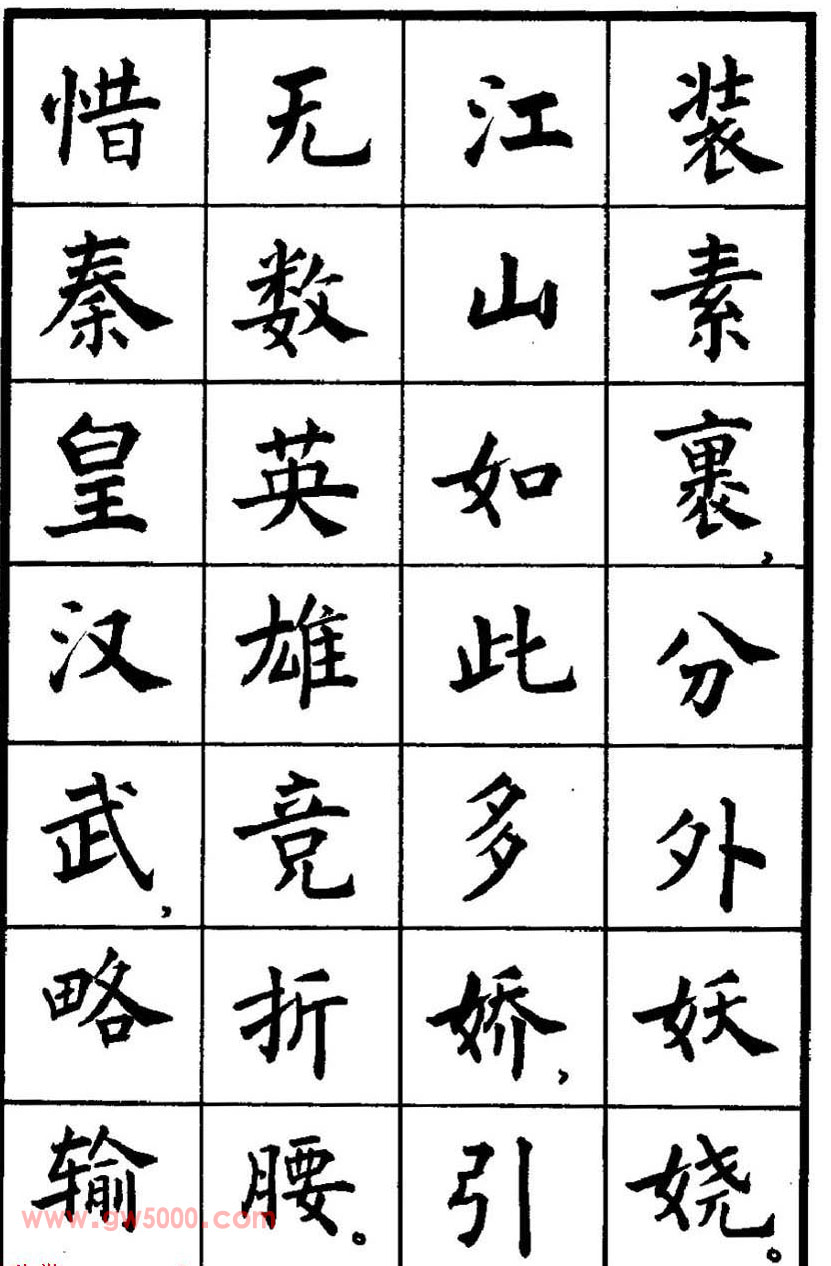 装素裹，分外妖娆。
江山如此多娇，引
无数英雄竞折腰。
惜秦皇汉武，略输
www.gw5000.com